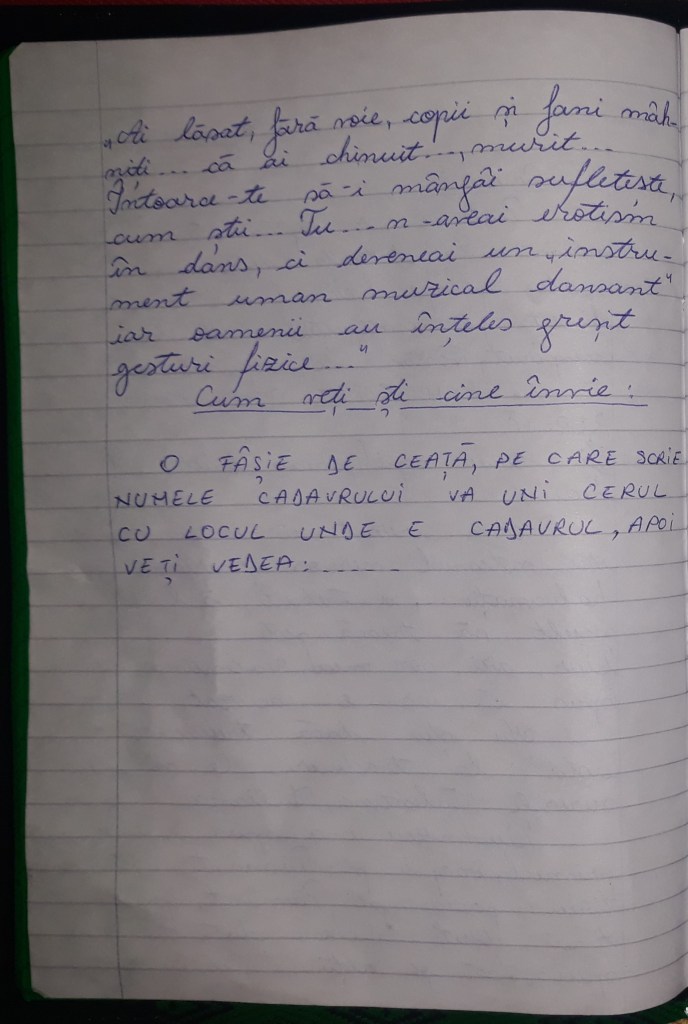 „Ai lăsat, fără voie, copii și fani mâh-
niți... că ai chinuit..., murit...
Întoarce-te să-i mângâi sufletește,
cum știi... Tu... n-aveai erotism
în dans, ci deveneai un „instru-
ment uman muzical dansant"
iar oamenii au înțeles greșit
gesturi fizice..."
Cum veți ști cine învie:
O FÂȘIE DE CEAȚĂ, PE CARE SCRIE
NUMELE CADAVRULUI VA UNI CERUL
CU LOCUL UNDE E CADAVRUL, APOI
VEȚI VEDEA:......